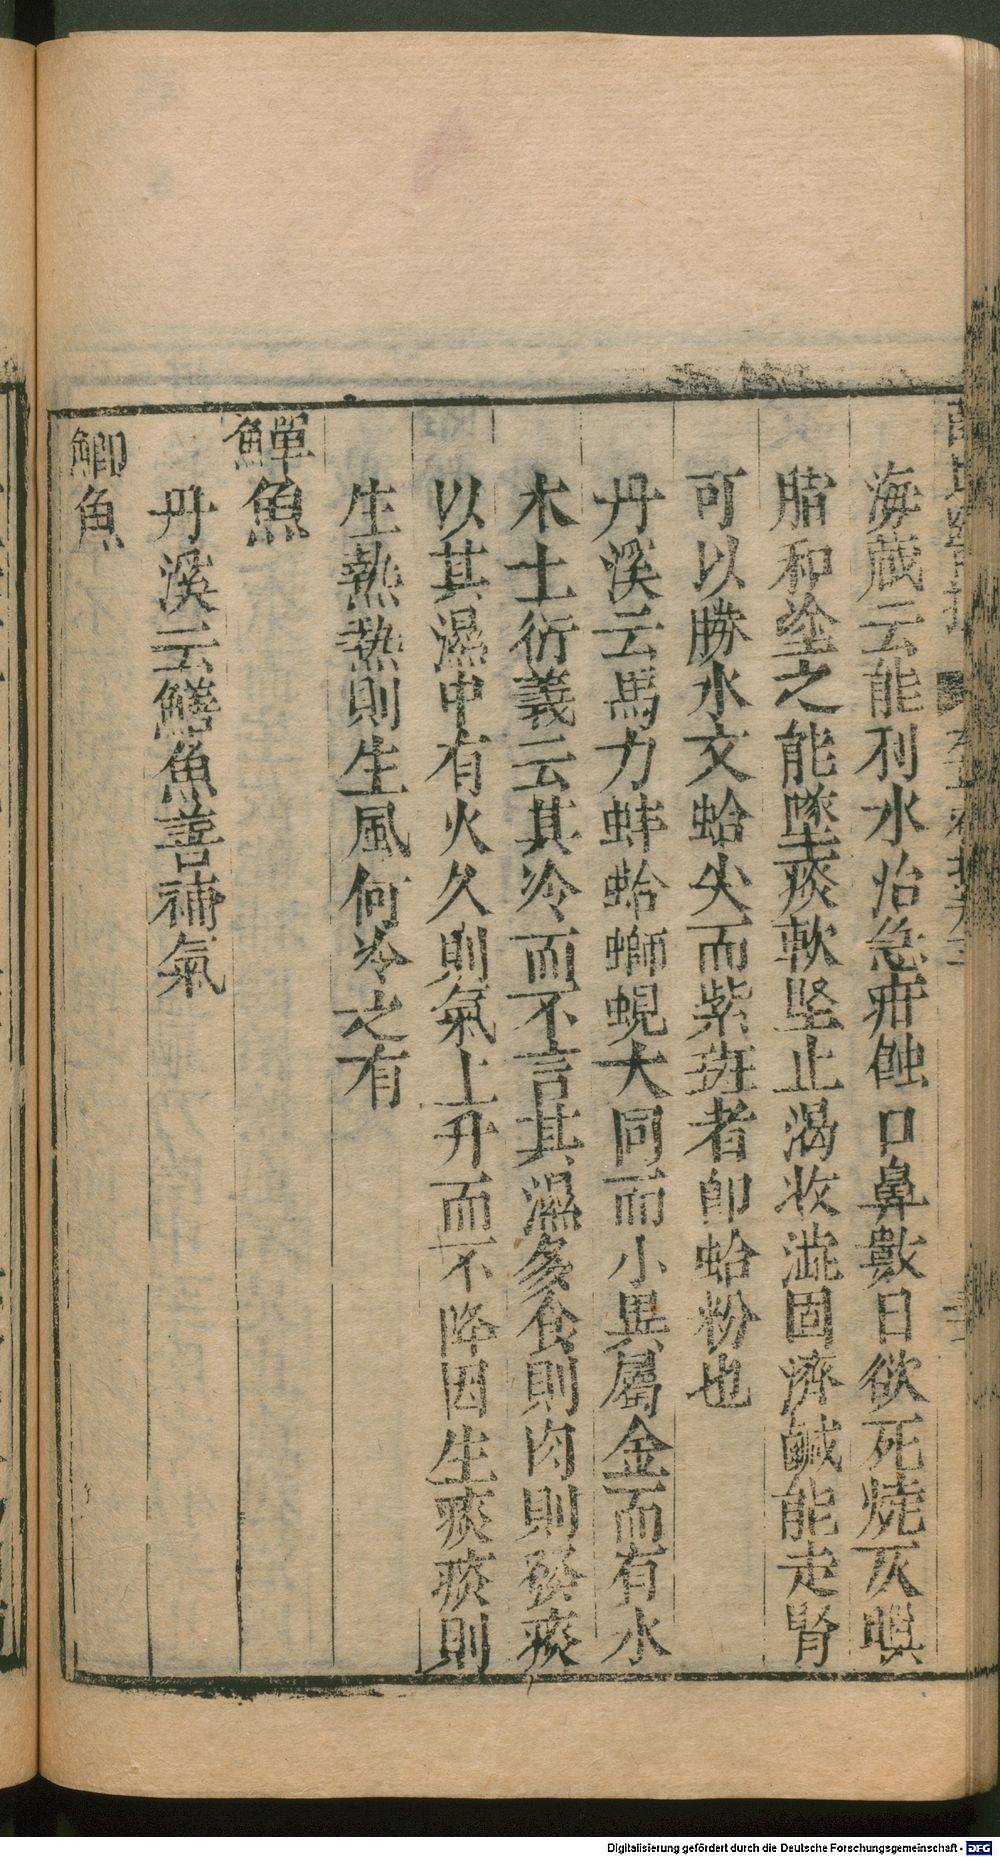 海藏云能利水治急疳蝕口鼻數日欲死燒灰
脂和塗之能墜痰軟堅止渴收澁固濟鹹能走腎
可以勝水文蛤尖而紫斑者即蛤粉也
丹溪云馬刀蚌蛤螄蜆大同而小異屬金而有水
木土衍義云其冷而不言其濕多食則肉則發痰
以其濕中有火久則氣上升而不降因生痰痰則
生熱熱則生風何冷之有
鱓魚
丹溪云鱔魚善補氣
鯽魚
Digitalisierung gefördert durch die Deutsche Forschungsgemeinschaft - DFG